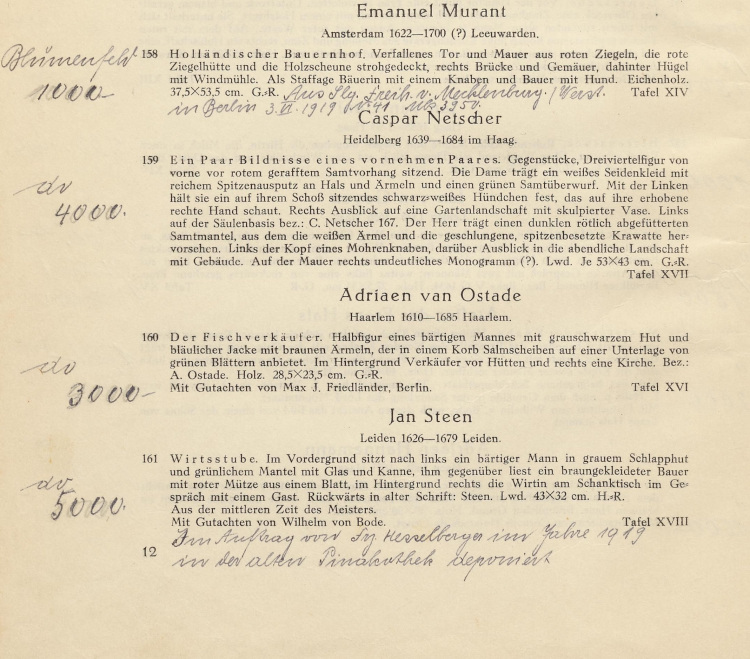 Emanuel Murant
Amsterdam 1622—1700 (?) Leeuwarden.
Blumenfeld
1000-
158 Holländischer Bauernhof. Verfallenes Tor und Mauer aus roten Ziegeln, die rote
Ziegelhütte und die Holzscheune strohgedeckt, rechts Brücke und Gemäuer, dahinter Hügel
mit Windmühle. Als Staffage Bäuerin mit einem Knaben und Bauer mit Hund. Eichenholz.
37,5×53,5 cm. G.-R. Aus Slg. Freih. v. Mecklenburg. / Verst. Tafel XIV
in Berlin 3. VI. 1919 Nr. 41 Mk 3950.
Caspar Netscher
Heidelberg 1639—1684 im Haag.
do
4000.
159 Ein Paar Bildnisse eines vornehmen Paares. Gegenstücke, Dreiviertelfigur von
vorne vor rotem gerafftem Samtvorhang sitzend. Die Dame trägt ein weißes Seidenkleid mit
reichem Spitzenausputz an Hals und Ärmeln und einen grünen Samtüberwurf. Mit der Linken
hält sie ein auf ihrem Schoß sitzendes schwarz-weißes Hündchen fest, das auf ihre erhobene
rechte Hand schaut. Rechts Ausblick auf eine Gartenlandschaft mit skulpierter Vase. Links
auf der Säulenbasis bez.: C. Netscher 167. Der Herr trägt einen dunklen rötlich abgefütterten
Samtmantel, aus dem die weißen Ärmel und die geschlungene, spitzenbesetzte Krawatte her-
vorsehen. Links der Kopf eines Mohrenknaben, darüber Ausblick in die abendliche Landschaft
mit Gebäude. Auf der Mauer rechts undeutliches Monogramm (?). Lwd. Je 53×43 cm. G.-R.
Tafel XVII
Adriaen van Ostade
Haarlem 1610—1685 Haarlem.
do
3000-
160 Der Fischverkäufer. Halbfigur eines bärtigen Mannes mit grauschwarzem Hut und
bläulicher Jacke mit braunen Ärmeln, der in einem Korb Salmscheiben auf einer Unterlage von
grünen Blättern anbietet. Im Hintergrund Verkäufer vor Hütten und rechts eine Kirche. Bez.:
A. Ostade. Holz. 28,5×23,5 cm. G.-R.
Mit Gutachten von Max J. Friedländer, Berlin. Tafel XVI
Jan Steen
Leiden 1626—1679 Leiden.
do
5000.
161 Wirtsstube. Im Vordergrund sitzt nach links ein bärtiger Mann in grauem Schlapphut
und grünlichem Mantel mit Glas und Kanne, ihm gegenüber liest ein braungekleideter Bauer
mit roter Mütze aus einem Blatt, im Hintergrund rechts die Wirtin am Schanktisch im Ge-
spräch mit einem Gast. Rückwärts in alter Schrift: Steen. Lwd. 43×32 cm. H.-R.
Aus der mittleren Zeit des Meisters.
Mit Gutachten von Wilhelm von Bode. Tafel XVIII
Im Auftrag von Hesselberger im Jahre 1919
in der alten Pinakothek deponiert
12